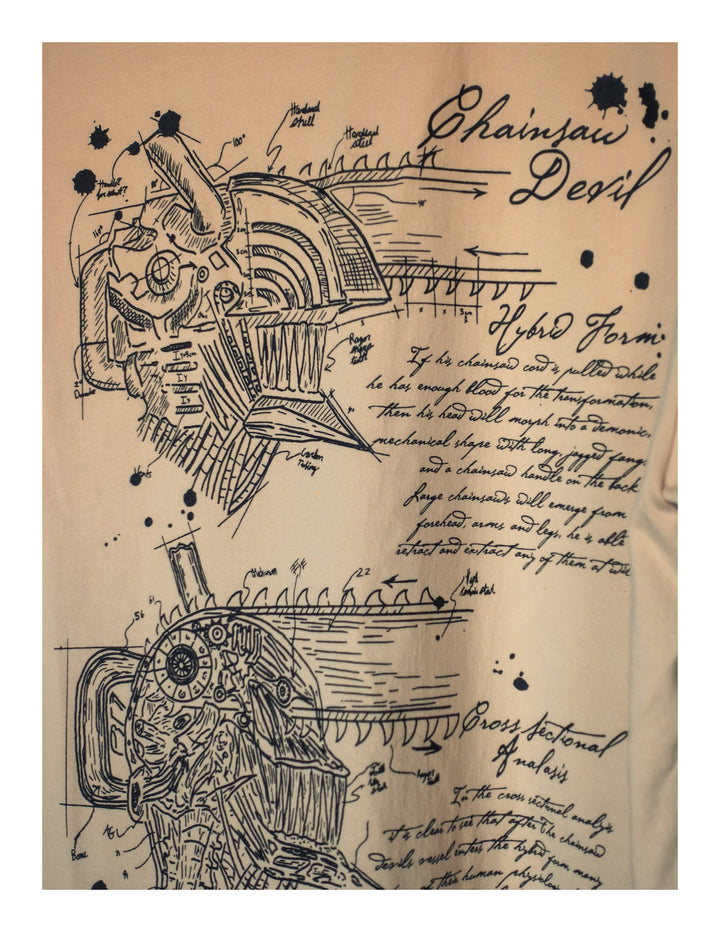 Chainsaw
Devil
Hardened
Steel
Hardened
steel
100°
Handle?
for what?
Hybrid Form:
If his chainsaw cord is pulled while
he has enough blood for the transformation,
then his head will morph into a demonic,
mechanical shape with long, jagged fangs
and a chainsaw handle on the back
Large chainsaws will emerge from
forehead, arms and legs, he is able
retract and extract any of them at will
Razor
sharp
teeth
Carbon
Tubing
Vents
56
22
Cross sectional
Analasis
In the cross sectional analysis
it is clear to see that after the chainsaw
devils vessel enters the hybrid form many
human
Bone